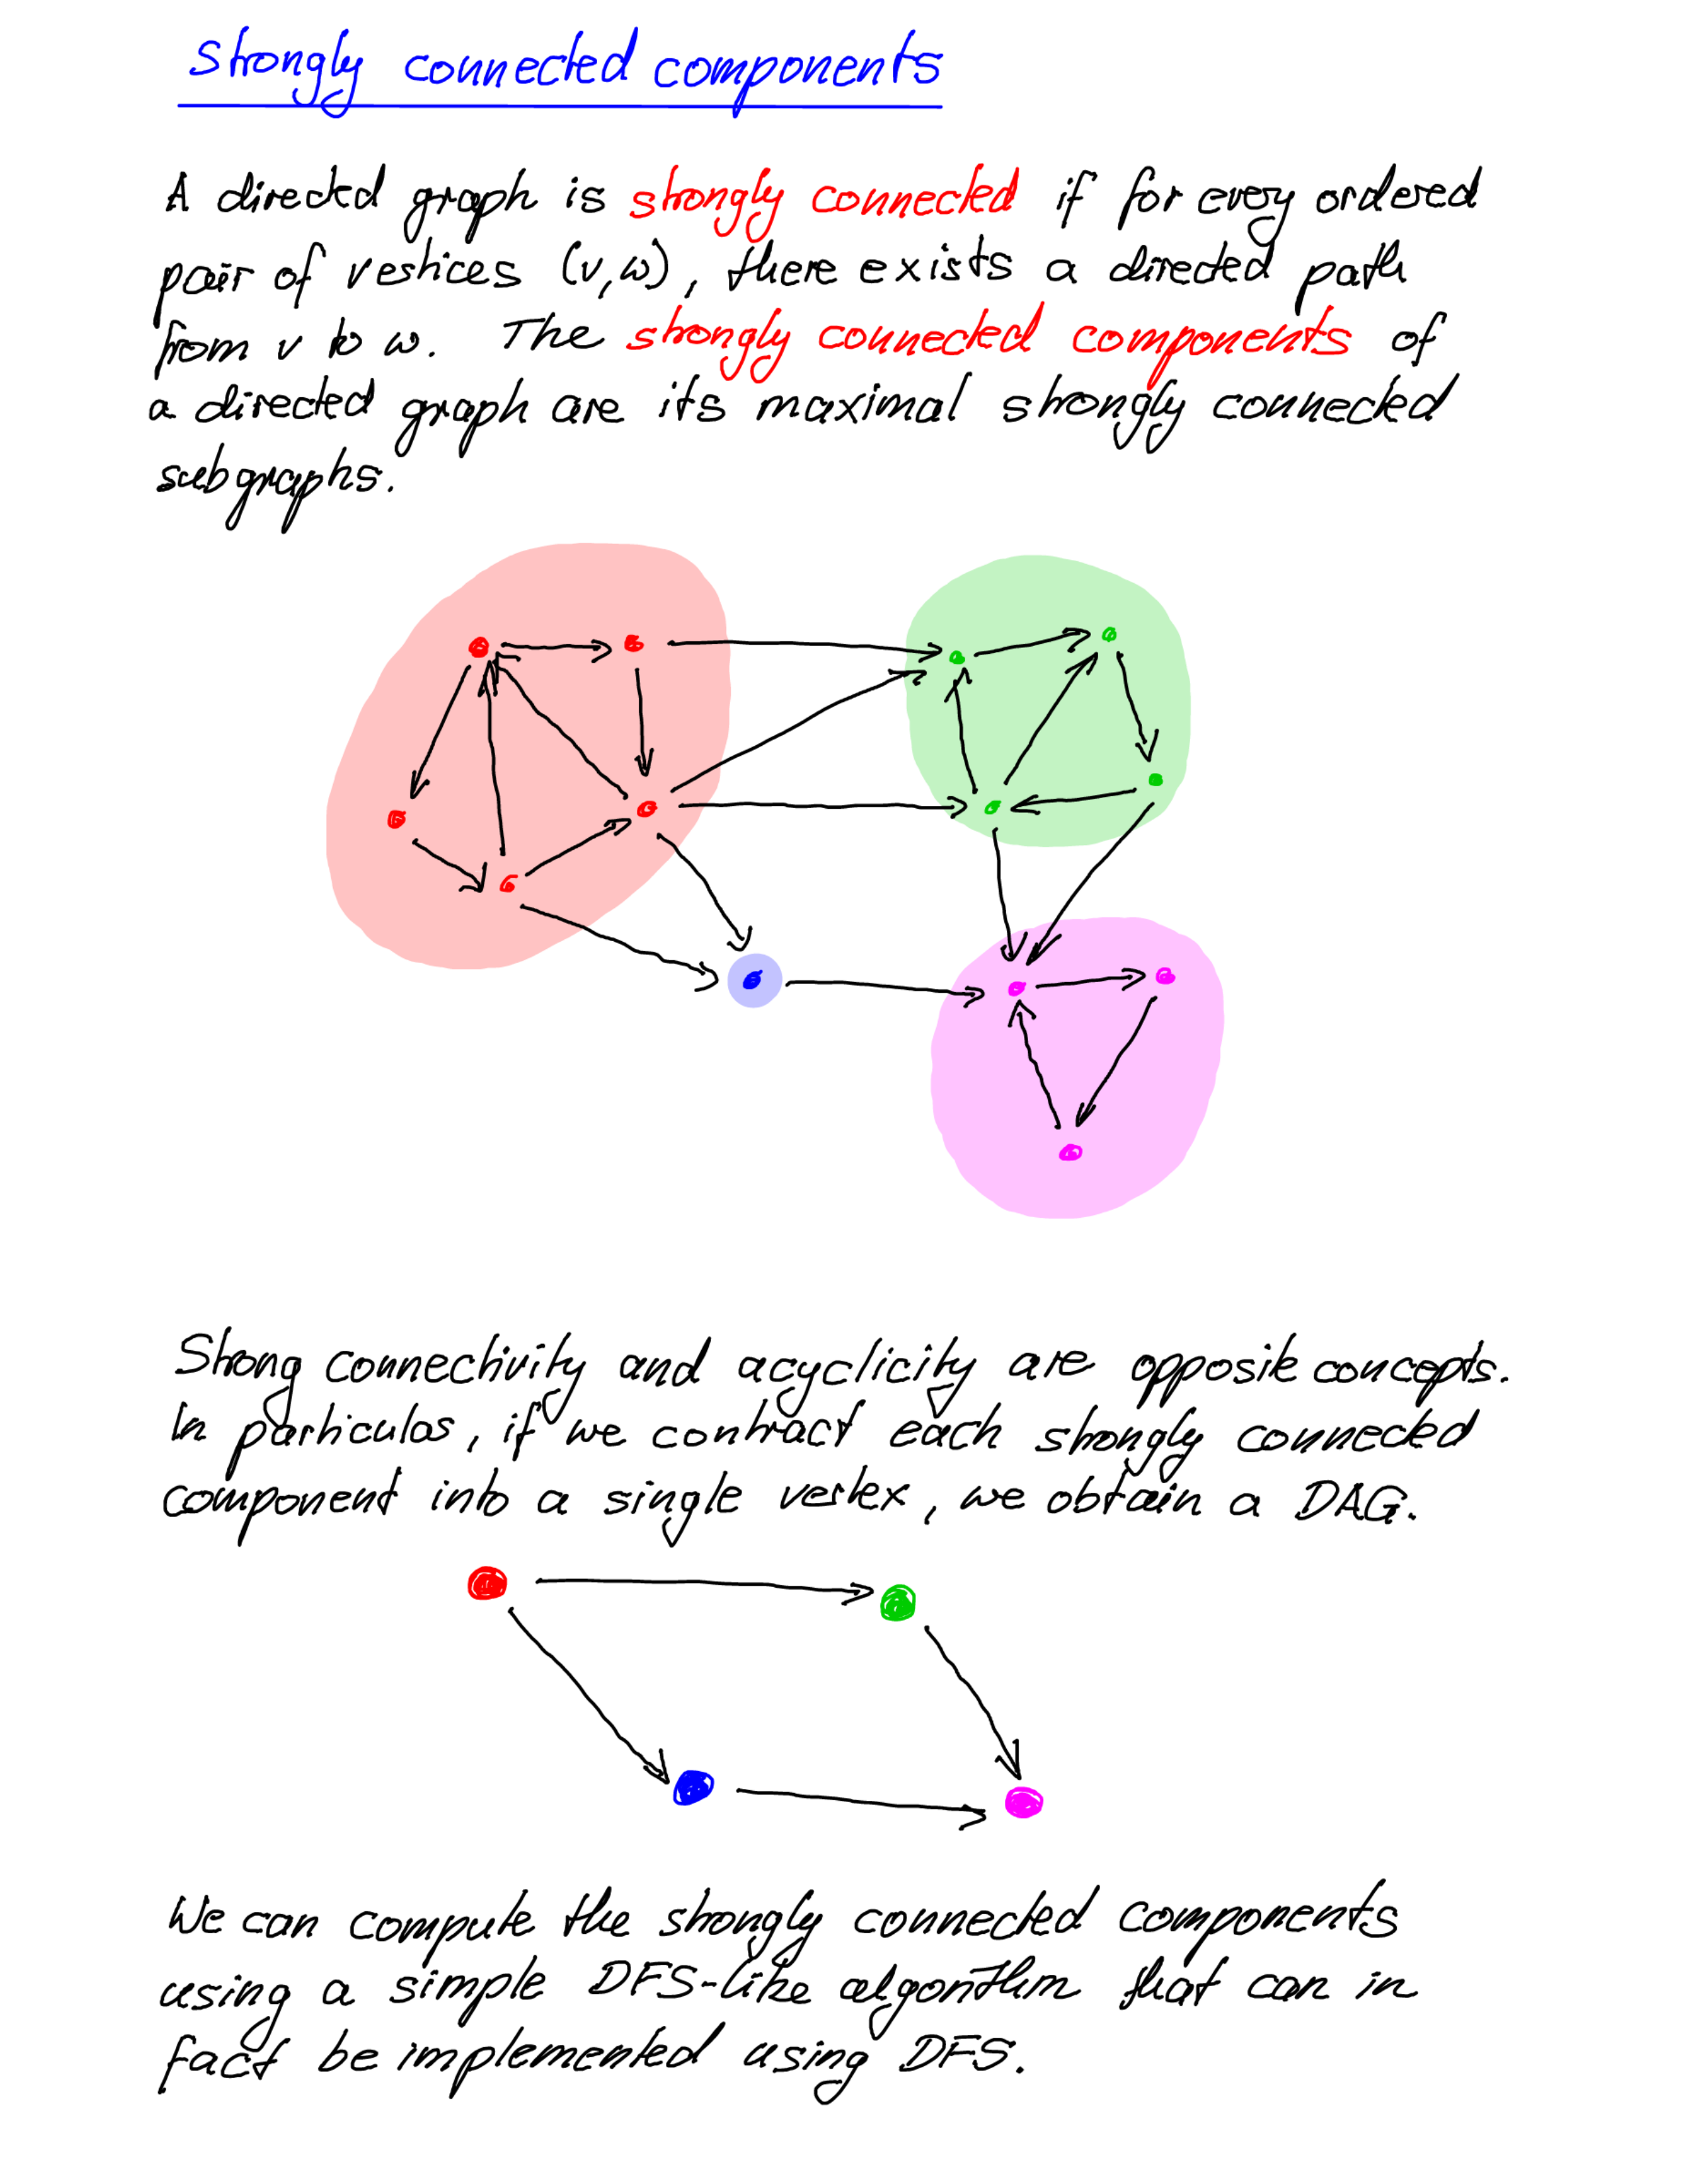 Strongly connected components
A directed graph is strongly connected if for every ordered
pair of vertices (v,w), there exists a directed path
from v to w. The strongly connected components of
a directed graph are its maximal strongly connected
subgraphs.
Strong connectivity and acyclicity are opposite concepts.
In particular, if we contract each strongly connected
component into a single vertex, we obtain a DAG.
We can compute the strongly connected components
using a simple DFS-like algorithm that can in
fact be implemented using DFS.